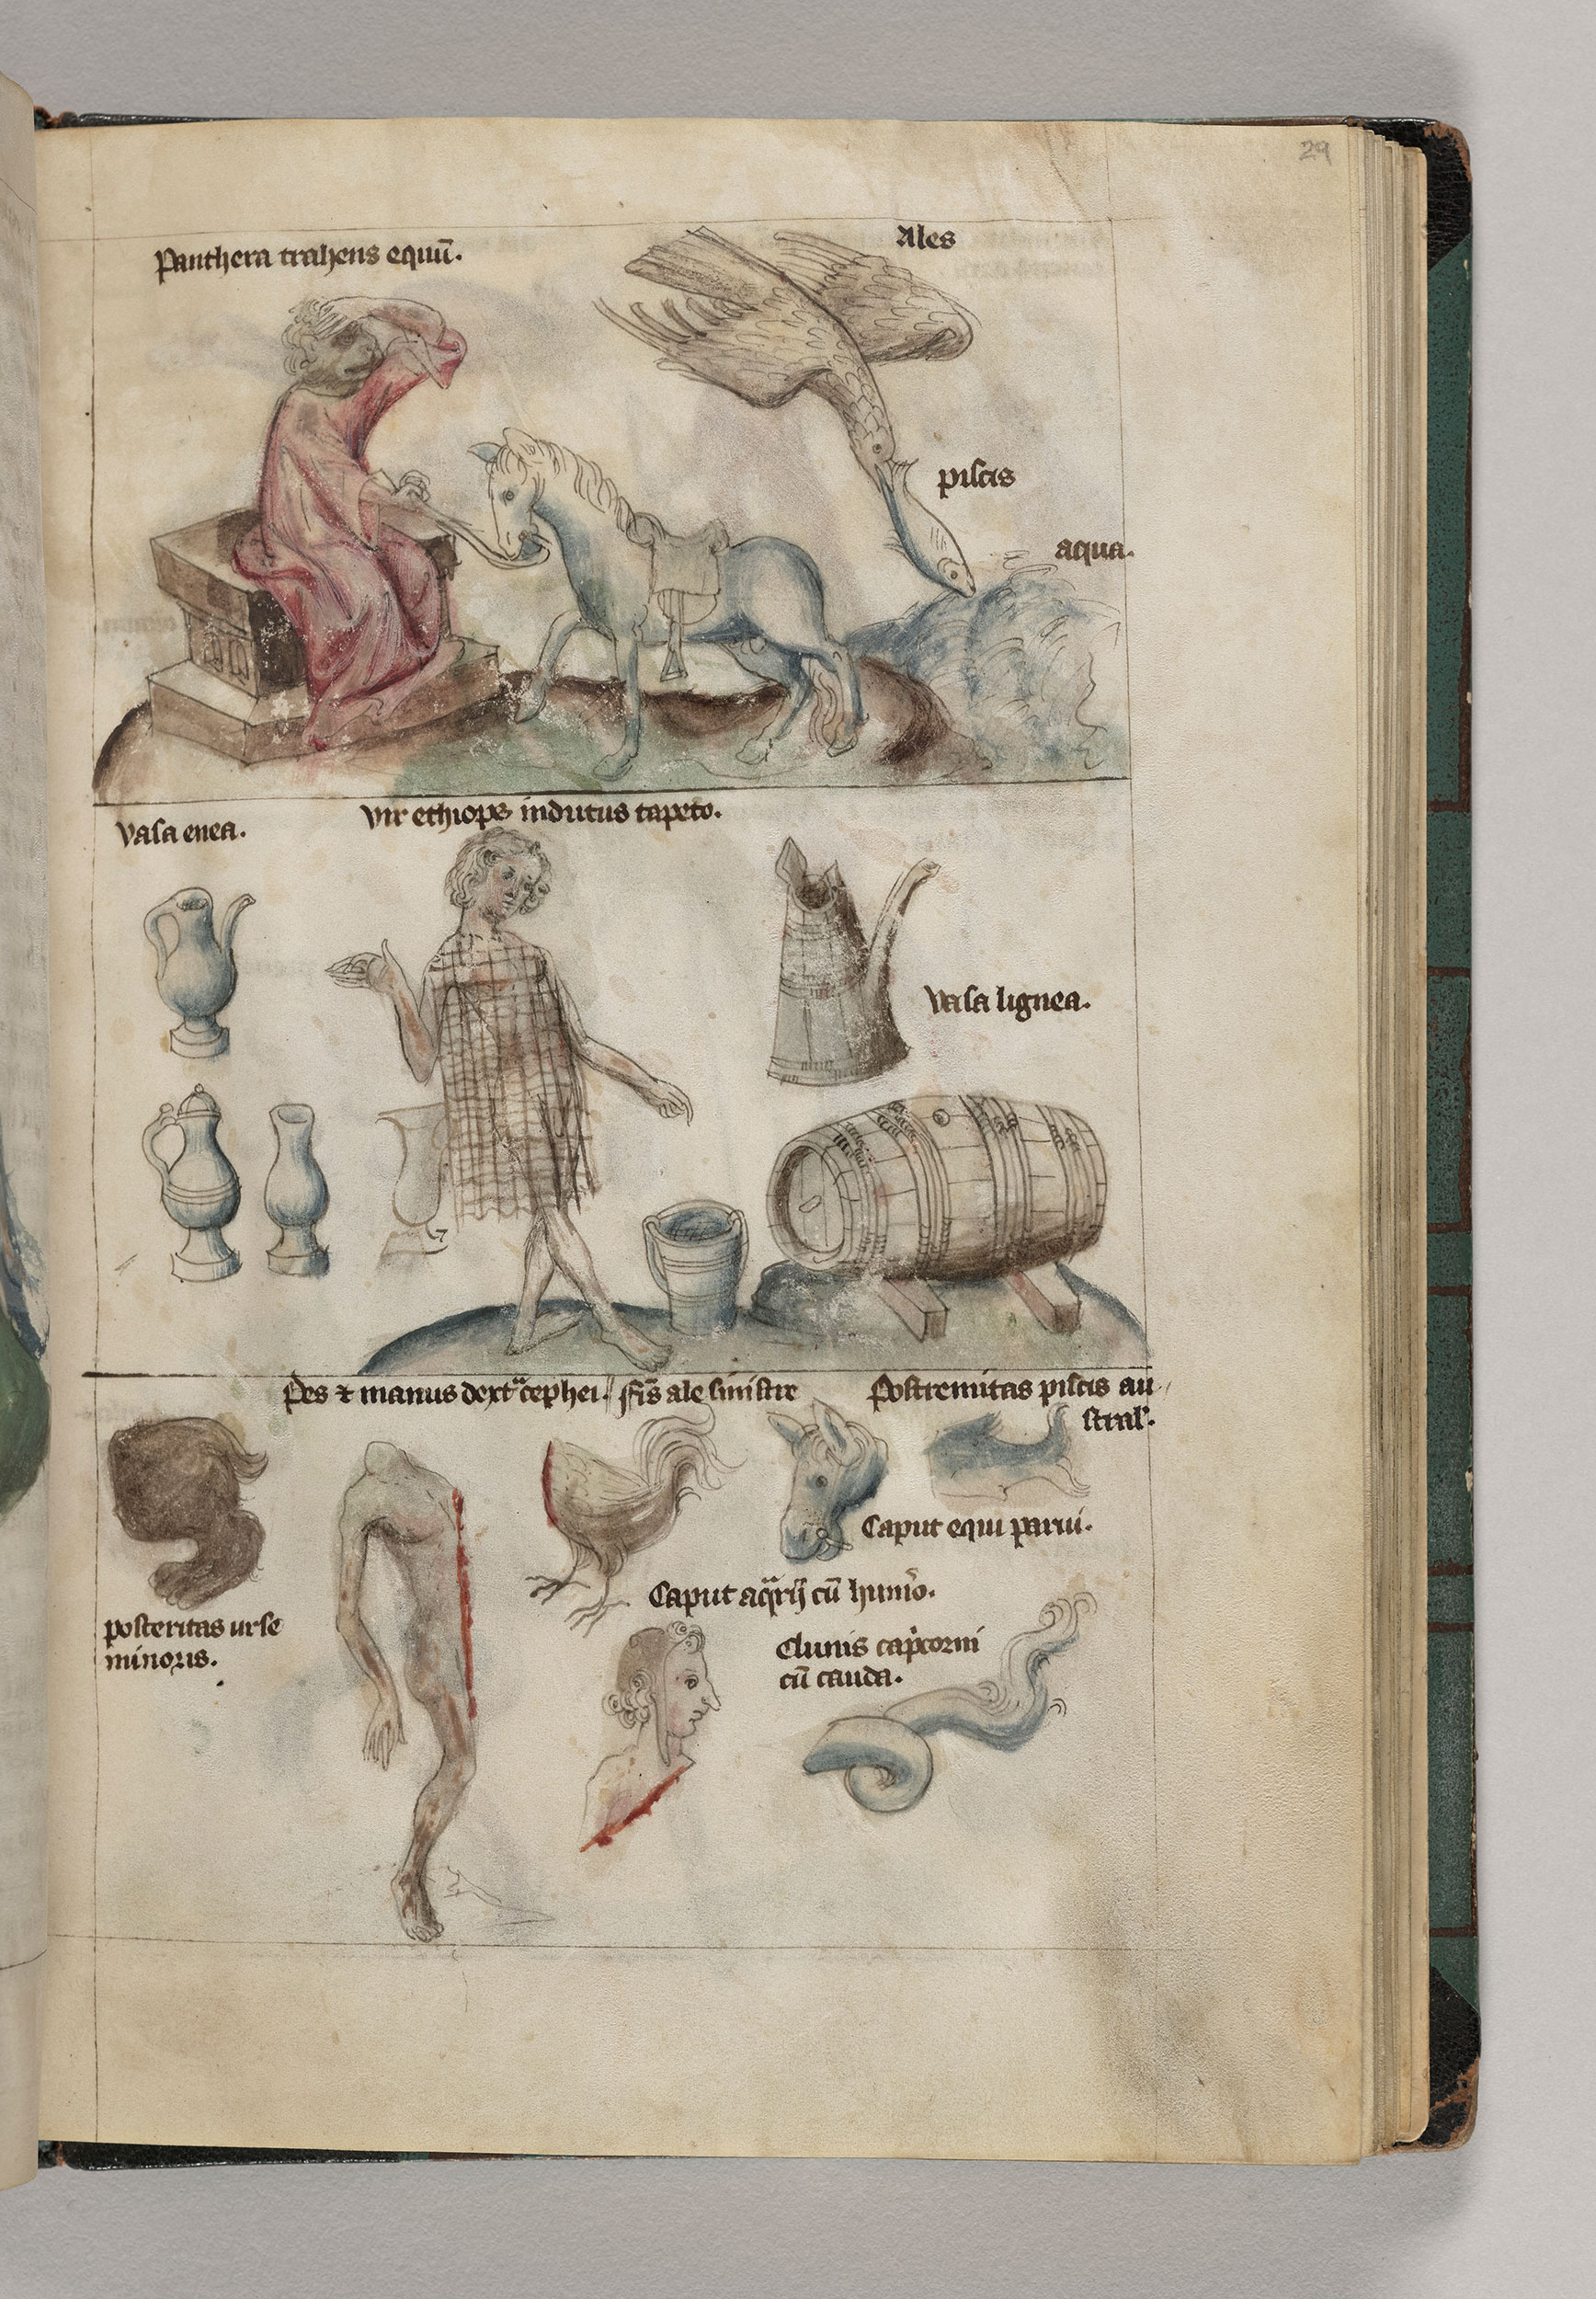 29
Panthera trahens equū.
Ales
piscis
aqua.
Vasa enea.
Vir ethiops indutus tapeto.
Vasa lignea.
Pes ⁊ manus dextͣ cephei. Fīs ale sinistre
Postremitas piscis au
stral'.
Caput equi parui.
posteritas urse
minoris.
Caput aqͣrij cū humͦo.
Clunis capͥcorni
cū cauda.